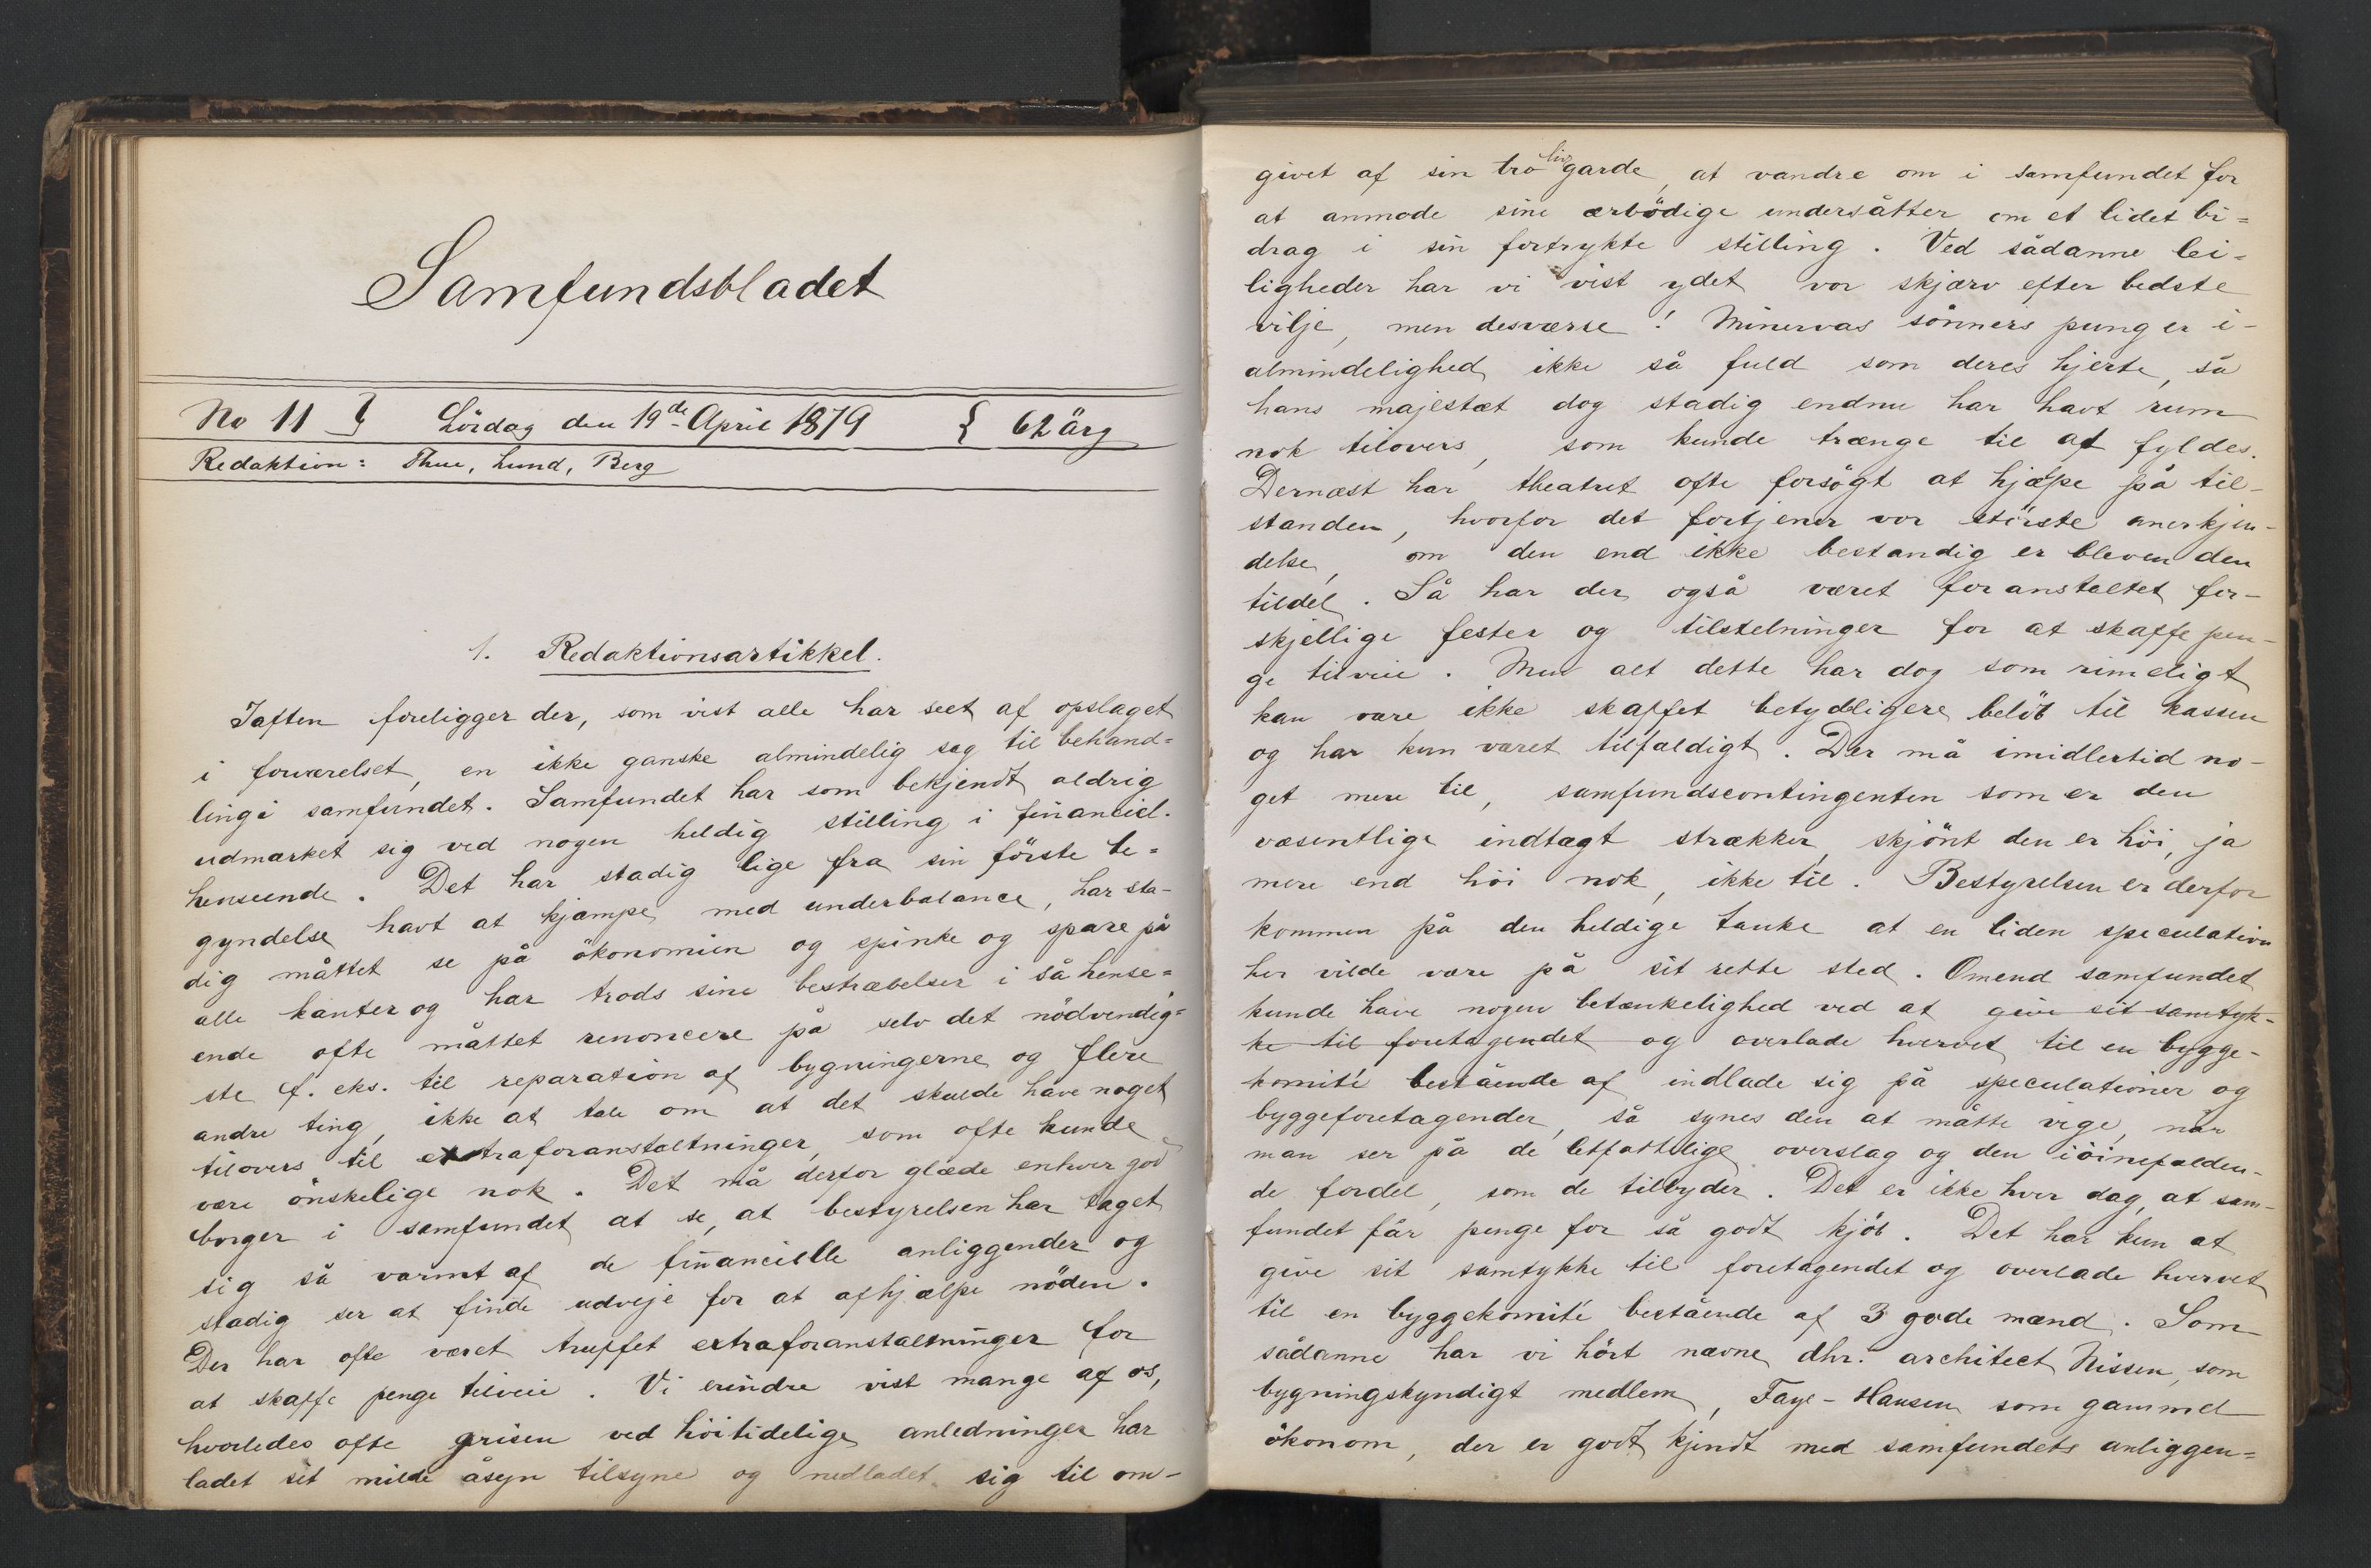 Samfundsbladet
No 11 } Lördag den 19de April 1879 { 62 årg
Redaktion: Thue, Lund, Berg
1. Redaktionsartikkel.
Iaften foreligger der, som vist alle har seet af opslaget
i forværelset, en ikke ganske almindelig sag til behand=
ling i samfundet. Samfundet har som bekjendt aldrig
udmærket sig ved nogen heldig stilling i financiel.
henseende. Det har stadig lige fra sin förste be=
gyndelse havt at kjæmpe med underbalance, har sta-
dig måttet se på ökonomien og spinke og spare på
alle kanter og har trods sine bestræbelser i så hense=
ende ofte måttet renoncere på selv det nödvendig=
ste f. eks. til reparation af bygningerne og flere
andre ting, ikke at tale om at det skulde have noget
tilovers til extraforanstaltninger, som ofte kunde
være önskelige nok. Det må derfor glæde enhver god
borger i samfundet at se, at bestyrelsen har taget
sig så varmt af de financielle anliggender og
stadig ser at finde udveje for at afhjælpe nöden.
Der har ofte været truffet extraforanstaltninger for
at skaffe penge tilveie. Vi erindre vist mange af os,
hvorledes ofte grisen ved höitidelige anledninger har
ladet sit milde åsyn tilsyne og nedladet sig til om-
givet af sin tro livgarde, at vandre om i samfundet for
at anmode sine ærbödige undersåtter om et lidet bi=
drag i sin fortrykte stilling. Ved sådanne lei=
ligheder har vi vist ydet vor skjærv efter bedste
vilje, men desværre! Minervas sönners pung er i-
almindelighed ikke så fuld som deres hjerte, så
hans majestæt dog stadig endnu har havt rum
nok tilovers, som kunde trænge til at fyldes.
Dernæst har theatret ofte forsögt at hjælpe på til-
standen, hvorfor det fortjener vor störste anerkjen-
delse, om den end ikke bestandig er bleven den
tildel. Så har der også været foranstaltet for-
skjellige fester og tilstelninger for at skaffe pen-
ge tilveie. Men alt dette har dog som rimeligt
kan være ikke skaffet betydligere belöb til kassen
og har kun været tilfældigt. Der må imidlertid no-
get mere til, samfundscontingenten som er den
væsentlige indtægt strækker, skjönt den er höi, ja
mere end höi nok, ikke til. Bestyrelsen er derfor
kommen på den heldige tanke at en liden speculation
her vilde være på sit rette sted. Omend samfundet
kunde have nogen betænkelighed ved at give sit samtyk-
ke til foretagendet og overlade hvervet til en bygge-
komité bestående af indlade sig på speculationer og
byggeforetagender, så synes den at måtte vige, når
man ser på de letfattelige overslag og den iöinefalden-
de fordel, som de tilbyder. Det er ikke hver dag, at sam-
fundet får penge for så godt kjöb. Det har kun at
give sit samtykke til foretagendet og overlade hvervet
til en byggekomité bestående af 3 gode mænd. Som
sådanne har vi hört nævne dhr. architect Nissen, som
bygningskyndigt medlem, Faye-Hansen som gammel
ökonom, der er godt kjendt med samfundets anliggen=